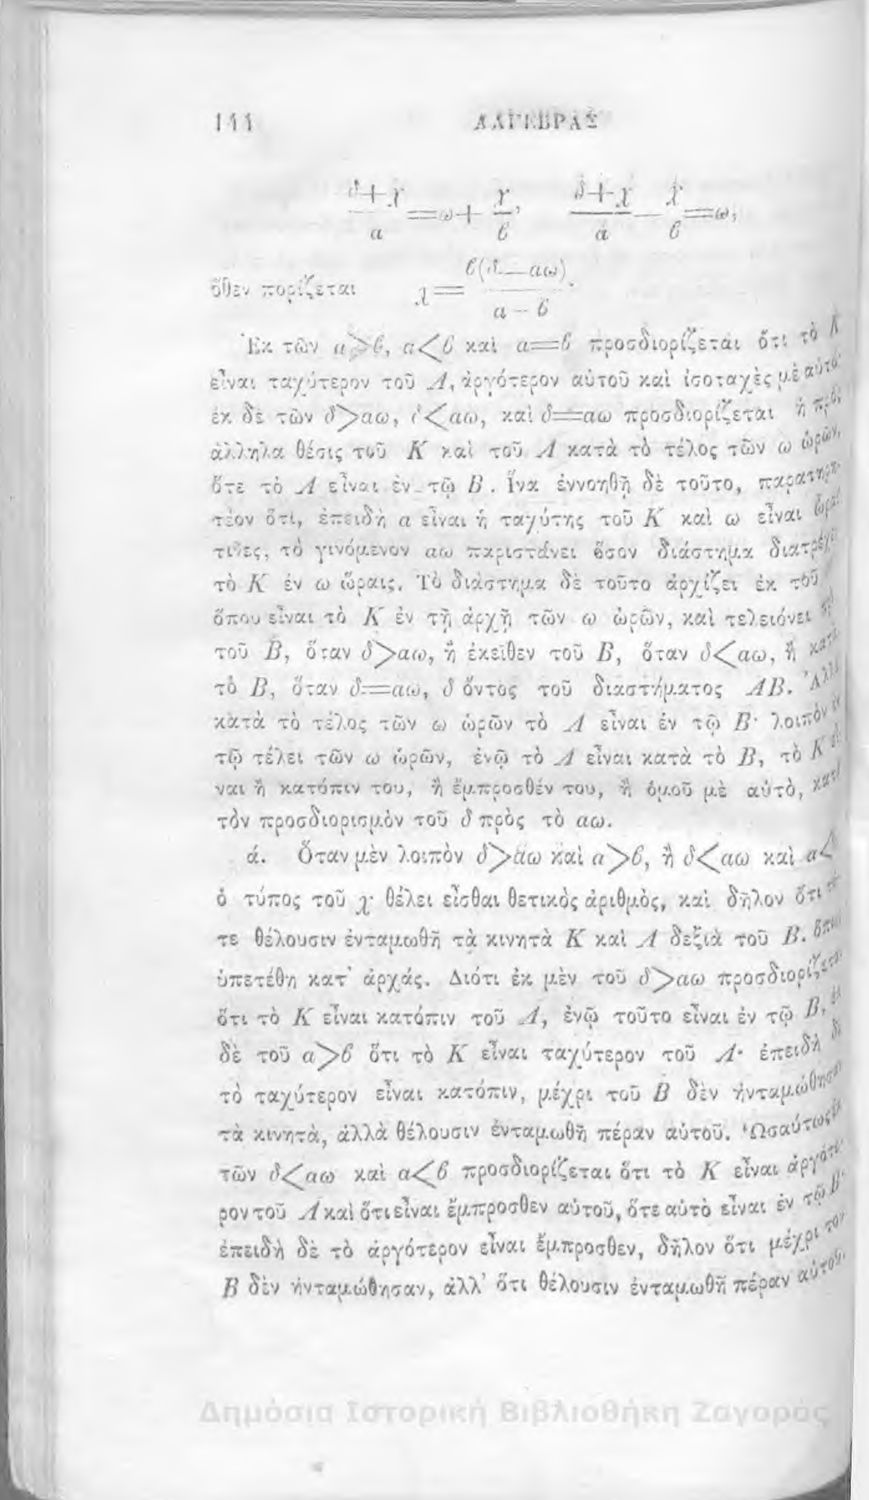 144 ΑΛΓΕΒΡΑΣ
δ+χ/α=ω+χ/β, δ+χ/α—χ/β=ω,
ὅθεν πορίζεται χ=β(δ—αω)/α—β.
Ἐκ τῶν α>β, α<β καὶ α=β προσδιορίζεται ὅτι τὸ Κ
εἶναι ταχύτερον τοῦ Α, ἀργότερον αὐτοῦ καὶ ἰσοταχὲς μὲ αὐτὸ·
ἐκ δὲ τῶν δ>αω, δ<αω, καὶ δ=αω προσδιορίζεται ἡ πρὸς
ἄλληλα θέσις τοῦ Κ καὶ τοῦ Α κατὰ τὸ τέλος τῶν ω ὡρῶν,
ὅτε τὸ Α εἶναι ἐν τῷ Β. Ἵνα ἐννοηθῇ δὲ τοῦτο, παρατηρη-
τέον ὅτι, ἐπειδὴ α εἶναι ἡ ταχύτης τοῦ Κ καὶ ω εἶναι
τινες, τὸ γινόμενον αω παριστάνει ὅσον διάστημα διατρέχει
τὸ Κ ἐν ω ὥραις. Τὸ διάστημα δὲ τοῦτο ἀρχίζει ἐκ τοῦ
ὅπου εἶναι τὸ Κ ἐν τῇ ἀρχῇ τῶν ω ὡρῶν, καὶ τελειόνει
τοῦ Β, ὅταν δ>αω, ἢ ἐκεῖθεν τοῦ Β, ὅταν δ<αω, ἢ κατὰ
τὸ Β, ὅταν δ=αω, δ ὄντος τοῦ διαστήματος ΑΒ. Ἀλλὰ
κατὰ τὸ τέλος τῶν ω ὡρῶν τὸ Α εἶναι ἐν τῷ Β· λοιπὸν ἐν
τῷ τέλει τῶν ω ὡρῶν, ἐνῷ τὸ Α εἶναι κατὰ τὸ Β, τὸ Κ εἶ-
ναι ἢ κατόπιν του, ἢ ἔμπροσθέν του, ἢ ὁμοῦ μὲ αὐτὸ, κατὰ
τὸν προσδιορισμὸν τοῦ δ πρὸς τὸ αω.
ά. Ὅταν μὲν λοιπὸν δ>αω καὶ α>β, ἢ δ<αω καὶ α<
ὁ τύπος τοῦ χ θέλει εἶσθαι θετικὸς ἀριθμὸς, καὶ δῆλον ὅτι
τε θέλουσιν ἐνταμωθῆ τὰ κινητὰ Κ καὶ Α δεξιὰ τοῦ Β. ὅπως
ὑπετέθη κατ' ἀρχάς. Διότι ἐκ μὲν τοῦ δ>αω προσδιορίζεται
ὅτι τὸ Κ εἶναι κατόπιν τοῦ Α, ἐνῷ τοῦτο εἶναι ἐν τῷ Β,
δὲ τοῦ α>β ὅτι τὸ Κ εἶναι ταχύτερον τοῦ Α· ἐπειδὴ δὲ
τὸ ταχύτερον εἶναι κατόπιν, μέχρι τοῦ Β δὲν ἠνταμώθησαν
τὰ κινητὰ, ἀλλὰ θέλουσιν ἐνταμωθῆ πέραν αὐτοῦ. Ὡσαύτως
τῶν δ<αω καὶ α<β προσδιορίζεται ὅτι τὸ Κ εἶναι ἀργότε-
ρον τοῦ Α καὶ ὅτι εἶναι ἔμπροσθεν αὐτοῦ, ὅτε αὐτὸ εἶναι ἐν τῷ Β.
ἐπειδὴ δὲ τὸ ἀργότερον εἶναι ἔμπροσθεν, δῆλον ὅτι μέχρι τοῦ
Β δὲν ἠνταμώθησαν, ἀλλ' ὅτι θέλουσιν ἐνταμωθῆ πέραν αὐτοῦ.
Δημόσια Ιστορική Βιβλιοθήκη Ζαγοράς